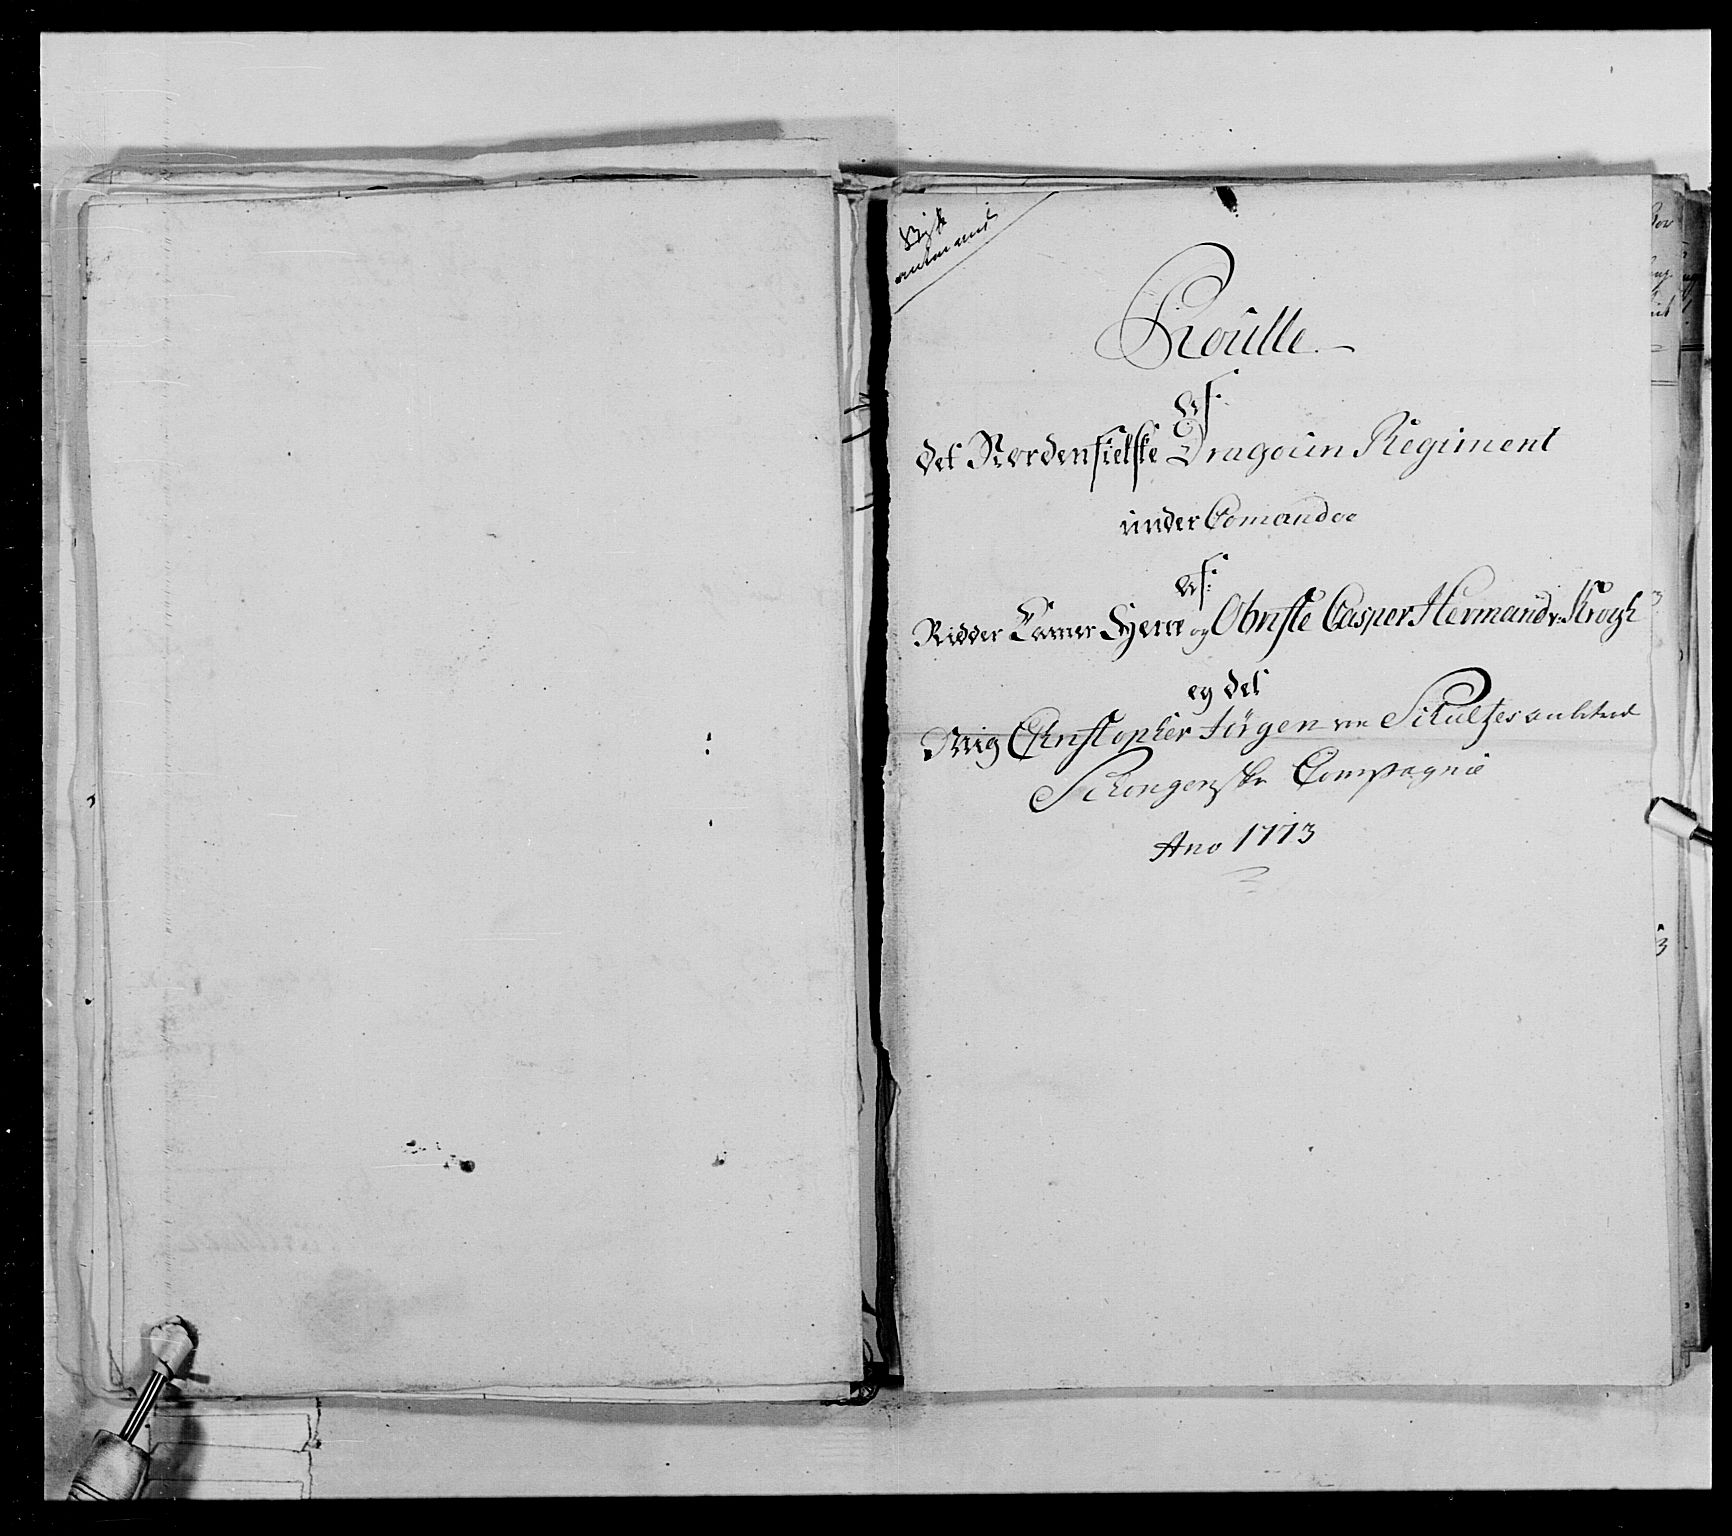 Roulle
af
det Nordenfielske Dragoun Regiment
under Comandoe
af
Ridder Camer Herre og Obriste Casper Hermand v: Krogh
og det
Mig Christopher Jörgen von Schultzes anbetroede
Schongerske Compagnie
Ano 1773